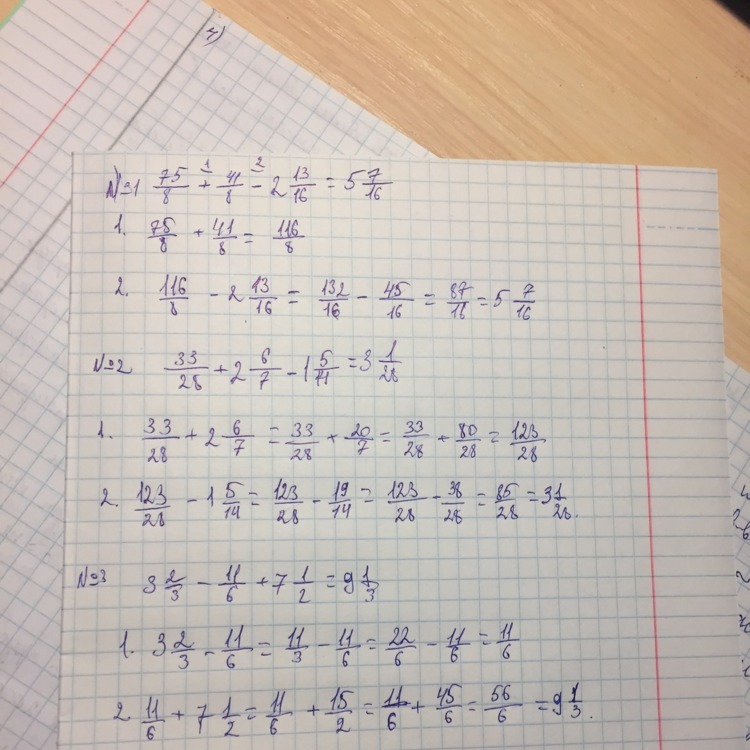 4)
№1 75/8 + 41/8 - 2 13/16 = 5 7/16
1. 75/8 + 41/8 = 116/8
2. 116/8 - 2 13/16 = 132/16 - 45/16 = 87/16 = 5 7/16
№2 33/28 + 2 6/7 - 1 5/14 = 3 1/28
1. 33/28 + 2 6/7 = 33/28 + 20/7 = 33/28 + 80/28 = 123/28
2. 123/28 - 1 5/14 = 123/28 - 19/14 = 123/28 - 38/28 = 85/28 = 3 1/28.
№3 3 2/3 - 11/6 + 7 1/2 = 9 1/3
1. 3 2/3 - 11/6 = 11/3 - 11/6 = 22/6 - 11/6 = 11/6
2 11/6 + 7 1/2 = 11/6 + 15/2 = 11/6 + 45/6 = 56/6 = 9 1/3.